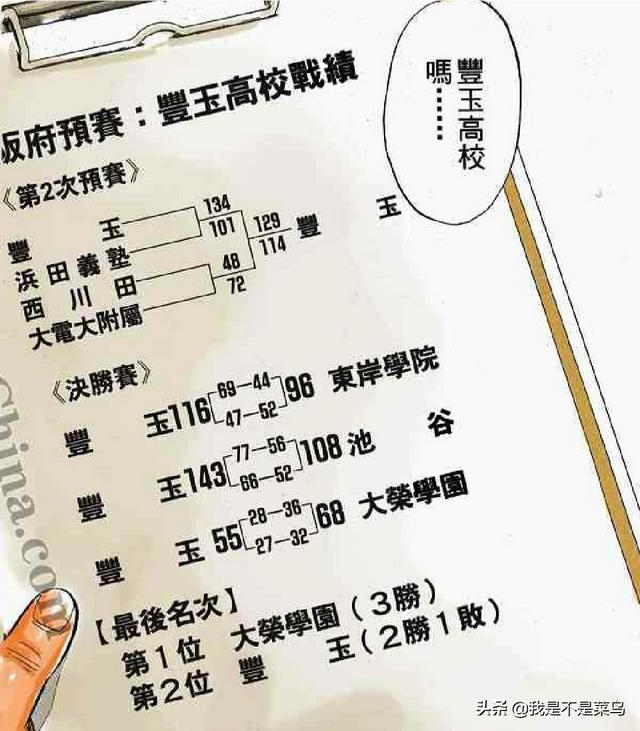 豐玉高校
嗎……
阪府預賽：豐玉高校戰績
《第2次預賽》
豐玉
浜田義塾
西川田
大電大附屬
134
101
48
72
129
114
豐玉
《決勝賽》
豐玉 116 69—44 47—52 96 東岸學院
豐玉 143 77—56 66—52 108 池谷
豐玉 55 28—36 27—32 68 大榮學園
【最後名次】
第1位 大榮學園（3勝）
第2位 豐玉（2勝1敗）
China.com
头条 @我是不是菜鸟